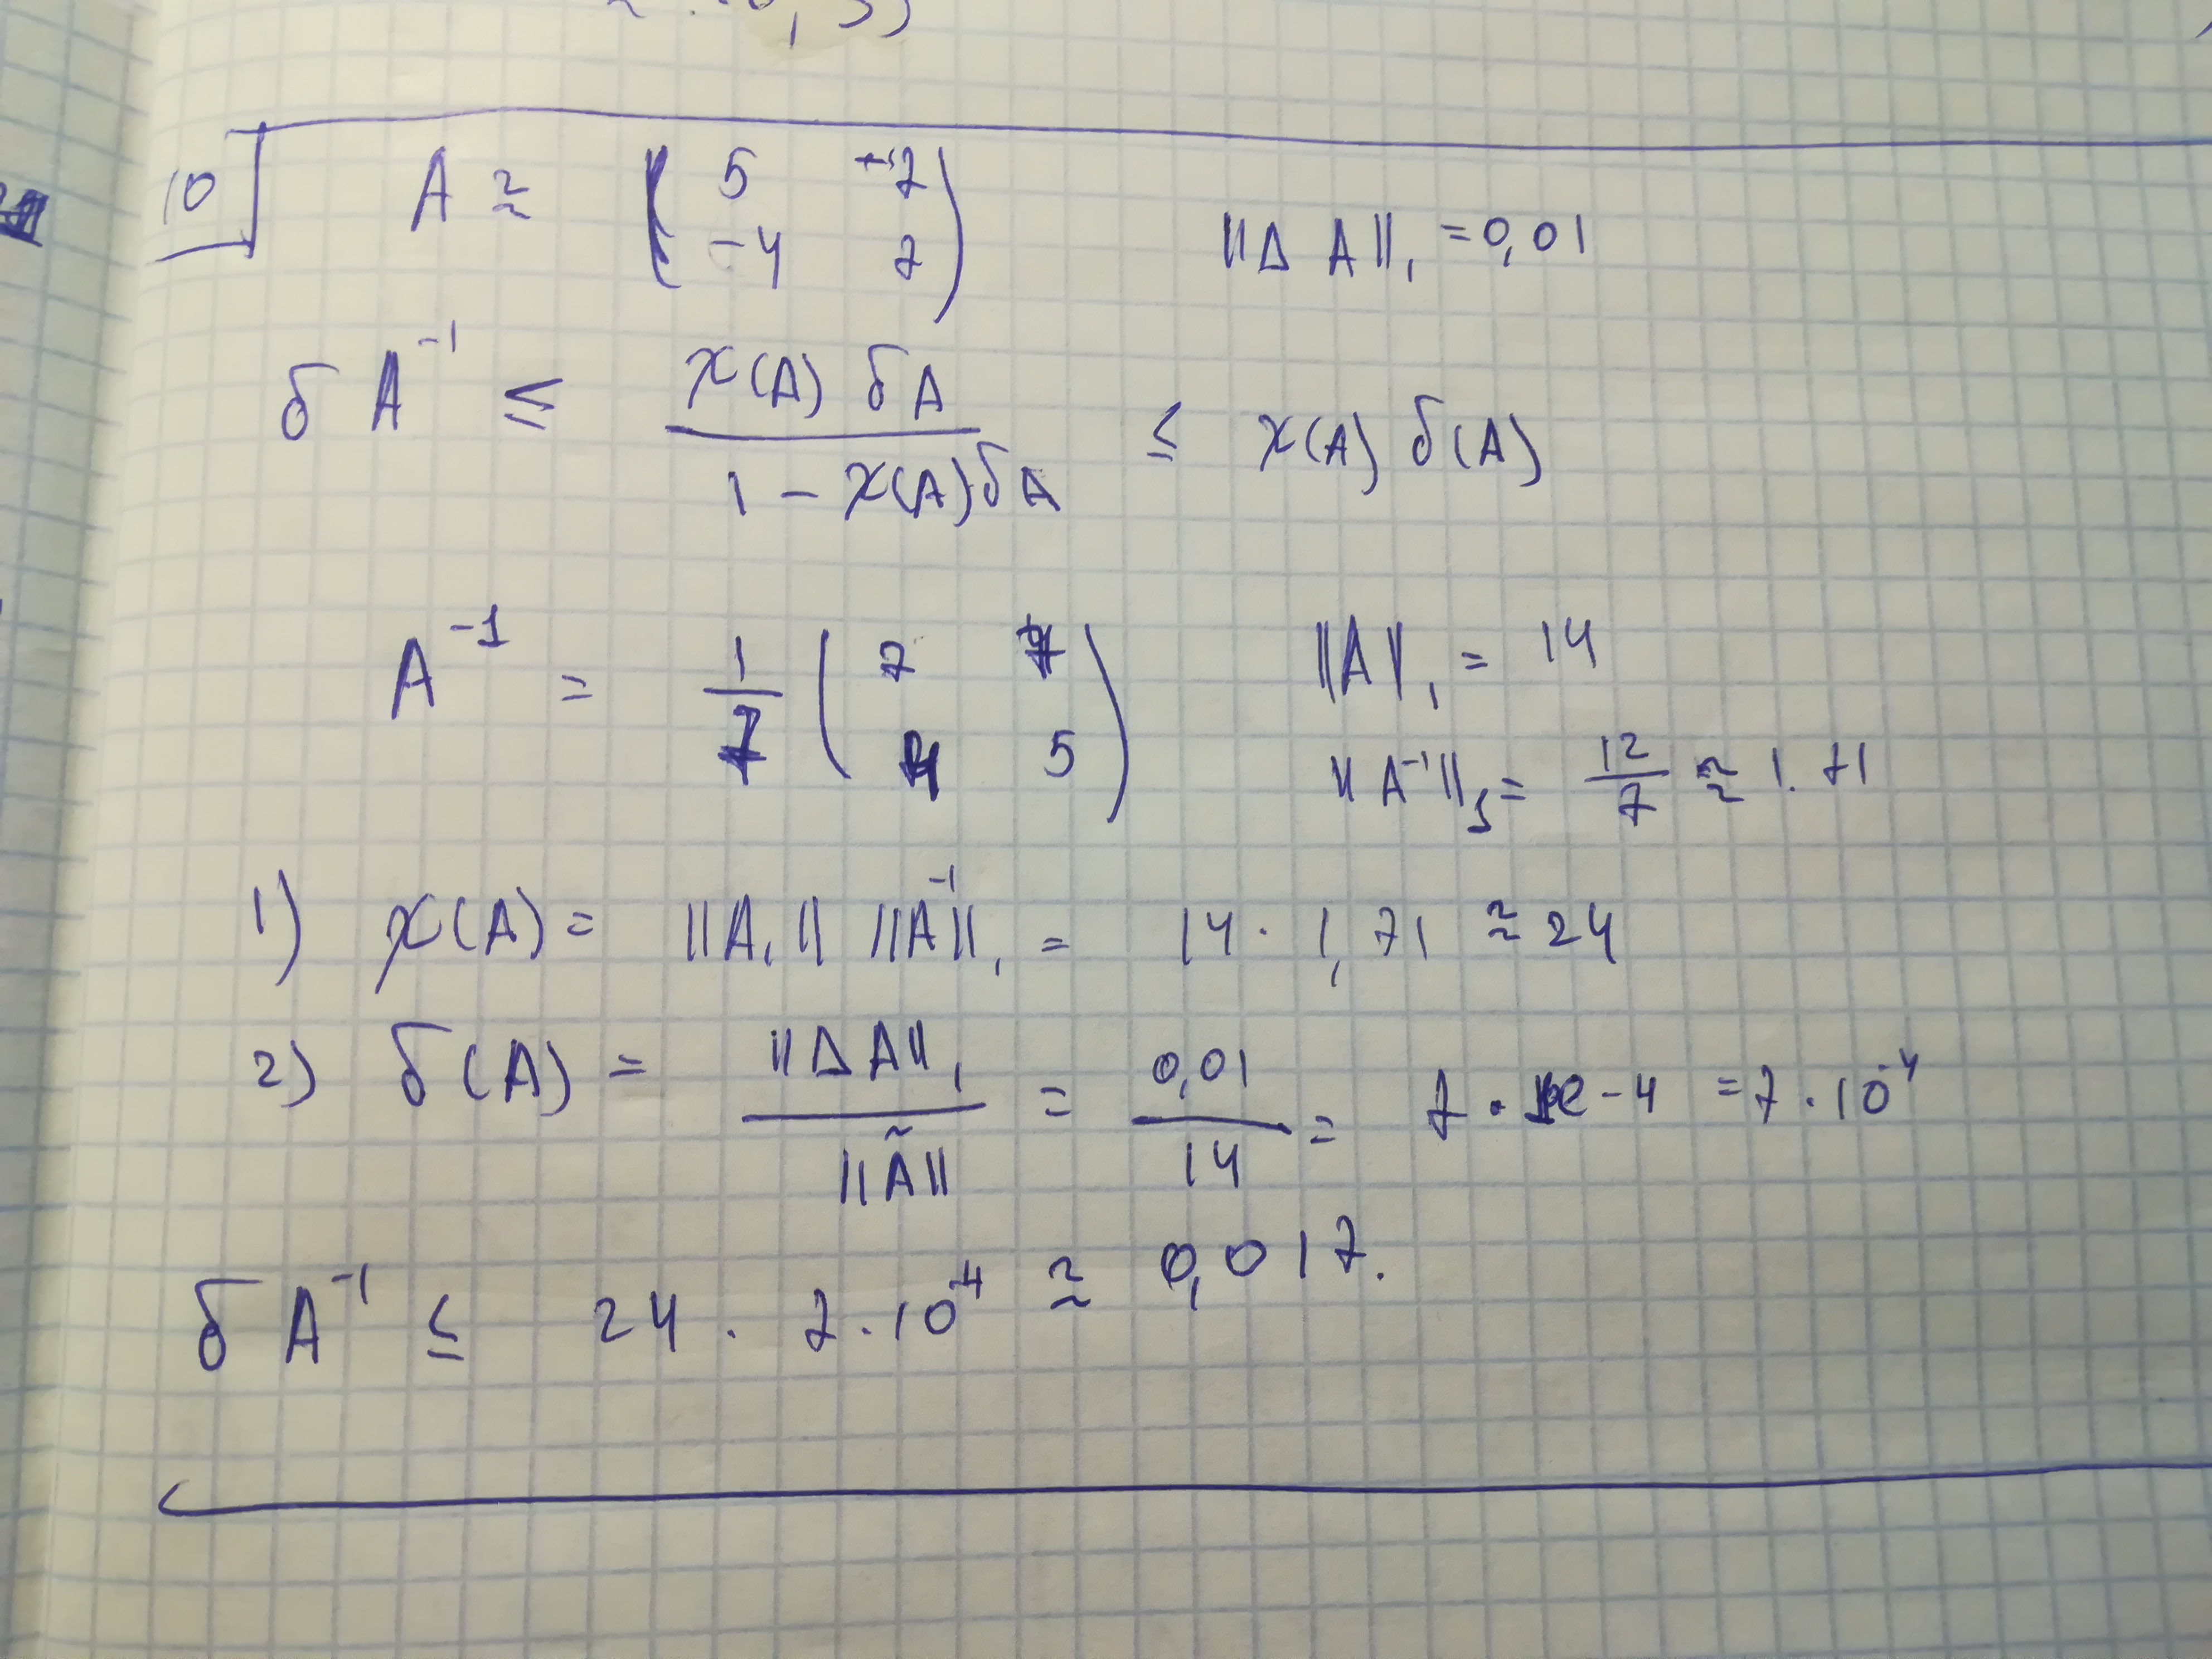 10 A ≈ ( 5 -7 ‖Δ A‖₁ = 0,01
-4 7 )
δ A⁻¹ ≤ ϰ(A) δA / 1 - ϰ(A)δA ≤ ϰ(A) δ(A)
A⁻¹ = 1/7 ( 7 7 ‖A‖₁ = 14
4 5 ) ‖A⁻¹‖₁ = 12/7 ≈ 1.71
1) ϰ(A) = ‖A₁‖ ‖A⁻¹‖₁ = 14 · 1,71 ≈ 24
2) δ(A) = ‖Δ A‖₁ / ‖Ã‖ = 0,01 / 14 = 7 · 1e-4 = 7 · 10⁻⁴
δ A⁻¹ ≤ 24 · 7 · 10⁻⁴ ≈ 0,017.